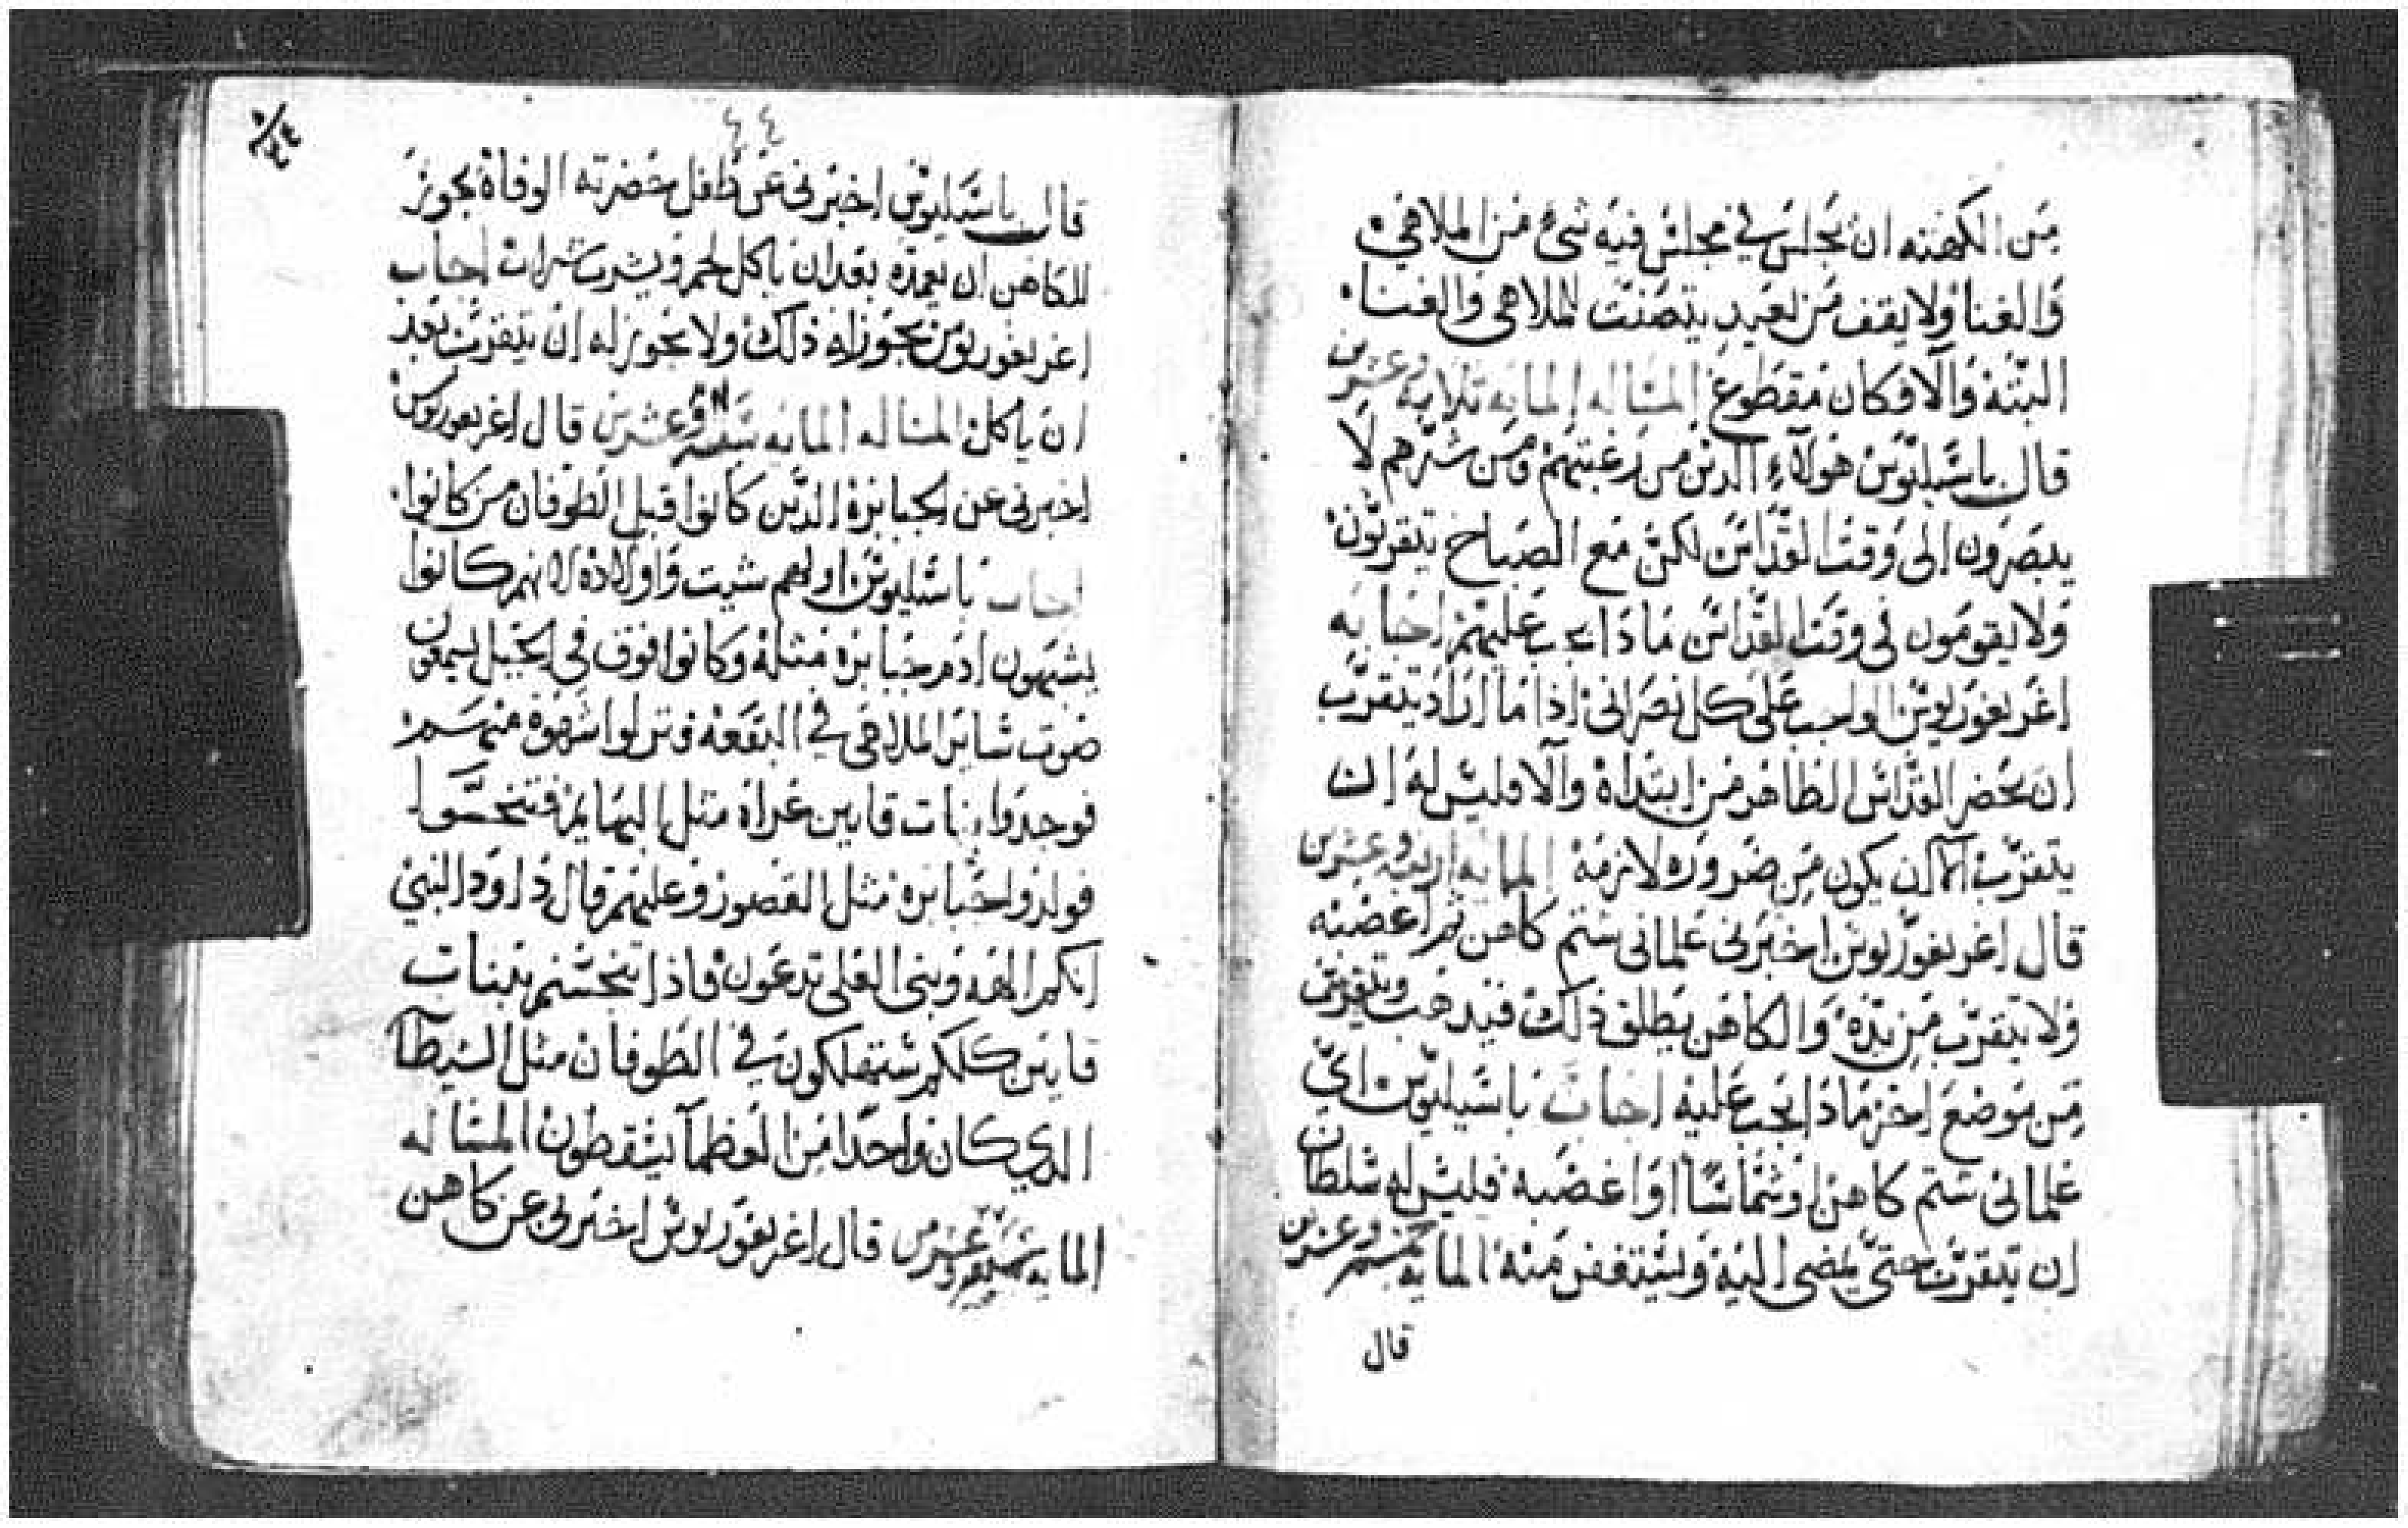 من الكهنه ان يجلس في مجلس فيه شئ من الملاهي
والغنا ولا يقف من بعيد يتصنت للملاهي والغنا
البتة والا فكان مقطوع المساله المايه تلاته وعشرين
قال باسيليوس هولاء الدين من رغبتهم ومن شرهم لا
يبصرون الى وقت القداس لكن مع الصباح يتقربون
ولا يقومون في وقت القداس مادا يجب عليهم اجابه
اغريغوريوس الواجب على كل نصراني اذا ما اراد يتقرب
ان يحضر القداس الطاهر من ابتداه والا فليس له ان
يتقرب الا ان يكون من ضروره لازمة المايه اربعه وعشرين
قال اغريغوريوس اخبرني علماني شتم كاهن ثم اغضبه
ولا يتقرب من يده والكاهن يطلق ذلك فيدهب ويتقرب
من موضع اخر مادا يجب عليه اجاب باسيليوس اي
علماني شتم كاهن او شماسا او اغضبه فليس له سلطان
ان يتقرب حتى يمضي اليه ويستغفر منه المايه خمسه وعشرين
قال
٤٤
قال باسيليوس اخبرني عن طفل حضرته الوفاة يجوز
للكاهن ان يعمده بعد ان ياكل لحم ويشرب شراب اجاب
اغريغوريوس يجوز له ذلك ولا يجوز له ان يتقرب بعد
ان ياكل المساله المايه سته وعشرين قال اغريغوريوس
اخبرني عن الجبابرة الدين كانوا قبل الطوفان من كانوا
اجاب باسيليوس اولهم شيت واولاده لانهم كانوا
يشبهون ادم جبابره مثله وكانوا فوق في الجبل يسمعون
صوت ساير الملاهي في البقعه ونزلوا شهوة منهم
فوجدوا بنات قايين عراه مثل البهايم فتنجسوا
فولدوا جبابره مثل القصور وعليهم قال داوود النبي
انكم الهه وبني العلي تدعون فاذا تنجستم ببنات
قايين كلكم ستهلكون في الطوفان مثل الشيطان
الدي كان واحدا من العظما يسقطون المساله
المايه وعشرين قال اغريغوريوس اخبرني عن كاهن